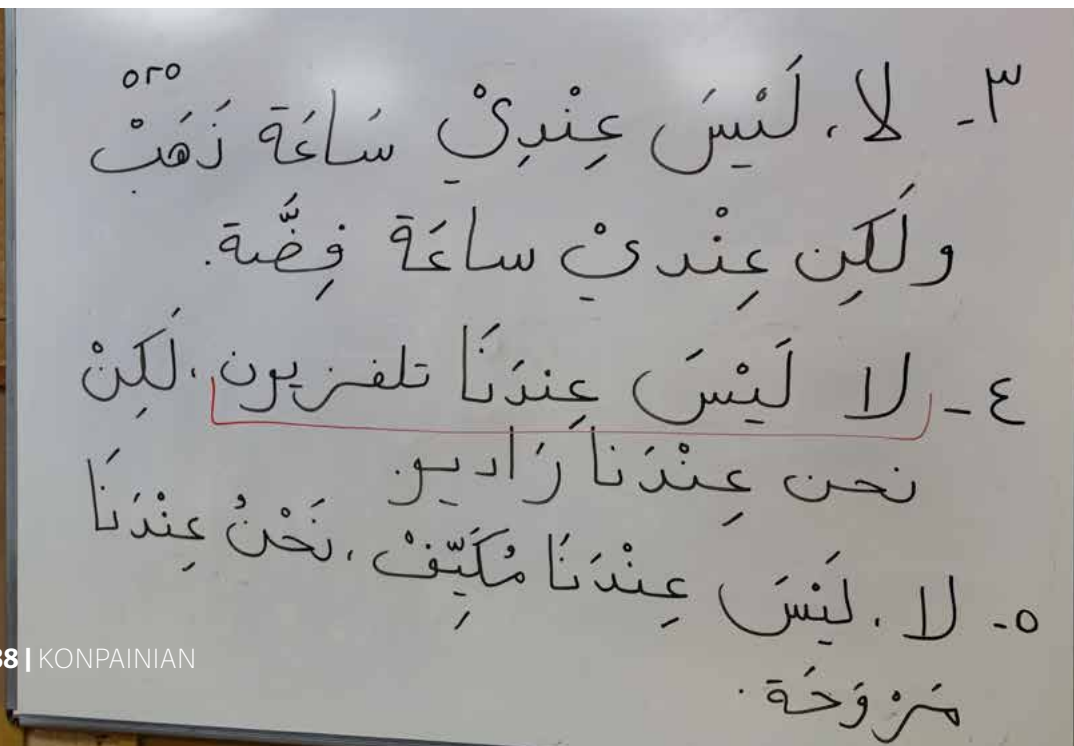 oro
٣- لا، لَيْسَ عِنْدِيْ سَاعَة ذَهَبْ
ولَكِن عِنْديْ ساعَة فِضَّة.
٤- لا لَيْسَ عِندَنَا تلفزيون، لَكِنْ
نحن عِنْدَنا رَاديو.
٥- لا، لَيْسَ عِنْدَنَا مُكَيِّفْ، نَحْنُ عِنْدَنَا
مَرْوَحَة.
38 | KONPAINIAN